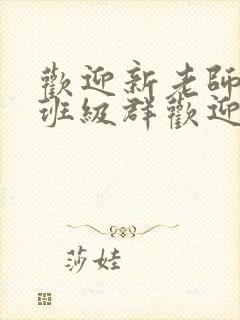 歡迎新老師
班級群歡迎
莎娃